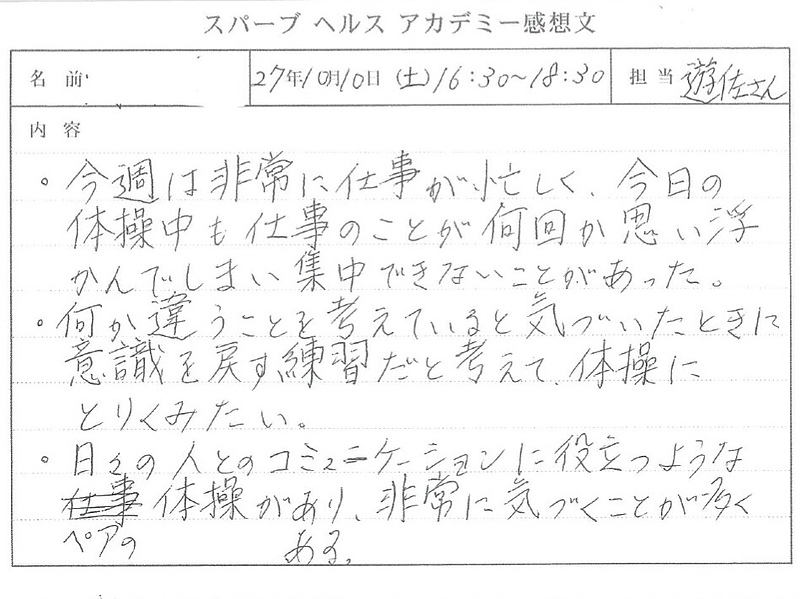 スパーブ ヘルス アカデミー感想文
名 前 27年10月10日 (土) 16:30~18:30 担 当 遊佐さん
内 容
。今週は非常に仕事が忙しく、今日の
体操中も仕事のことが何回か思い浮
かんでしまい集中できないことがあった。
・何か違うことを考えていると気づいたときに
意識を戻す練習だと考えて、体操に
とりくみたい。
。日々の人とのコミュニケーションに役立つような
仕事 体操があり、非常に気づくことが多く
ペアの ある。